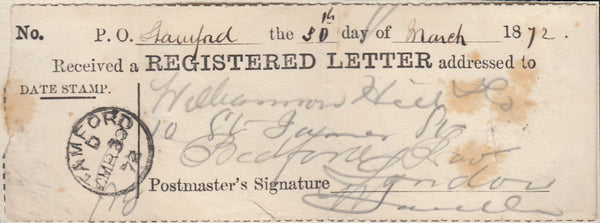 No. P. O. Stamford the 30th day of March 1872.
Received a REGISTERED LETTER addressed to
DATE STAMP.
Williamson Hill & Co
10 St James St
Bedford Row
London
STAMFORD
D
MR 30
72
Postmaster's Signature